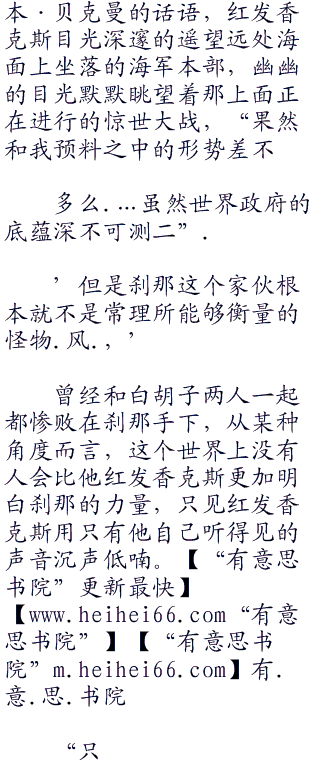 本·贝克曼的话语，红发香
克斯目光深邃的遥望远处海
面上坐落的海军本部，幽幽
的目光默默眺望着那上面正
在进行的惊世大战，“果然
和我预料之中的形势差不
多么....虽然世界政府的
底蕴深不可测二”.
’但是刹那这个家伙根
本就不是常理所能够衡量的
怪物.风.，’
曾经和白胡子两人一起
都惨败在刹那手下，从某种
角度而言，这个世界上没有
人会比他红发香克斯更加明
白刹那的力量，只见红发香
克斯用只有他自己听得见的
声音沉声低喃。【“有意思
书院”更新最快】
【www.heihei66.com“有意
思书院”】【“有意思书
院”m.heihei66.com】有.
意.思.书院
“只